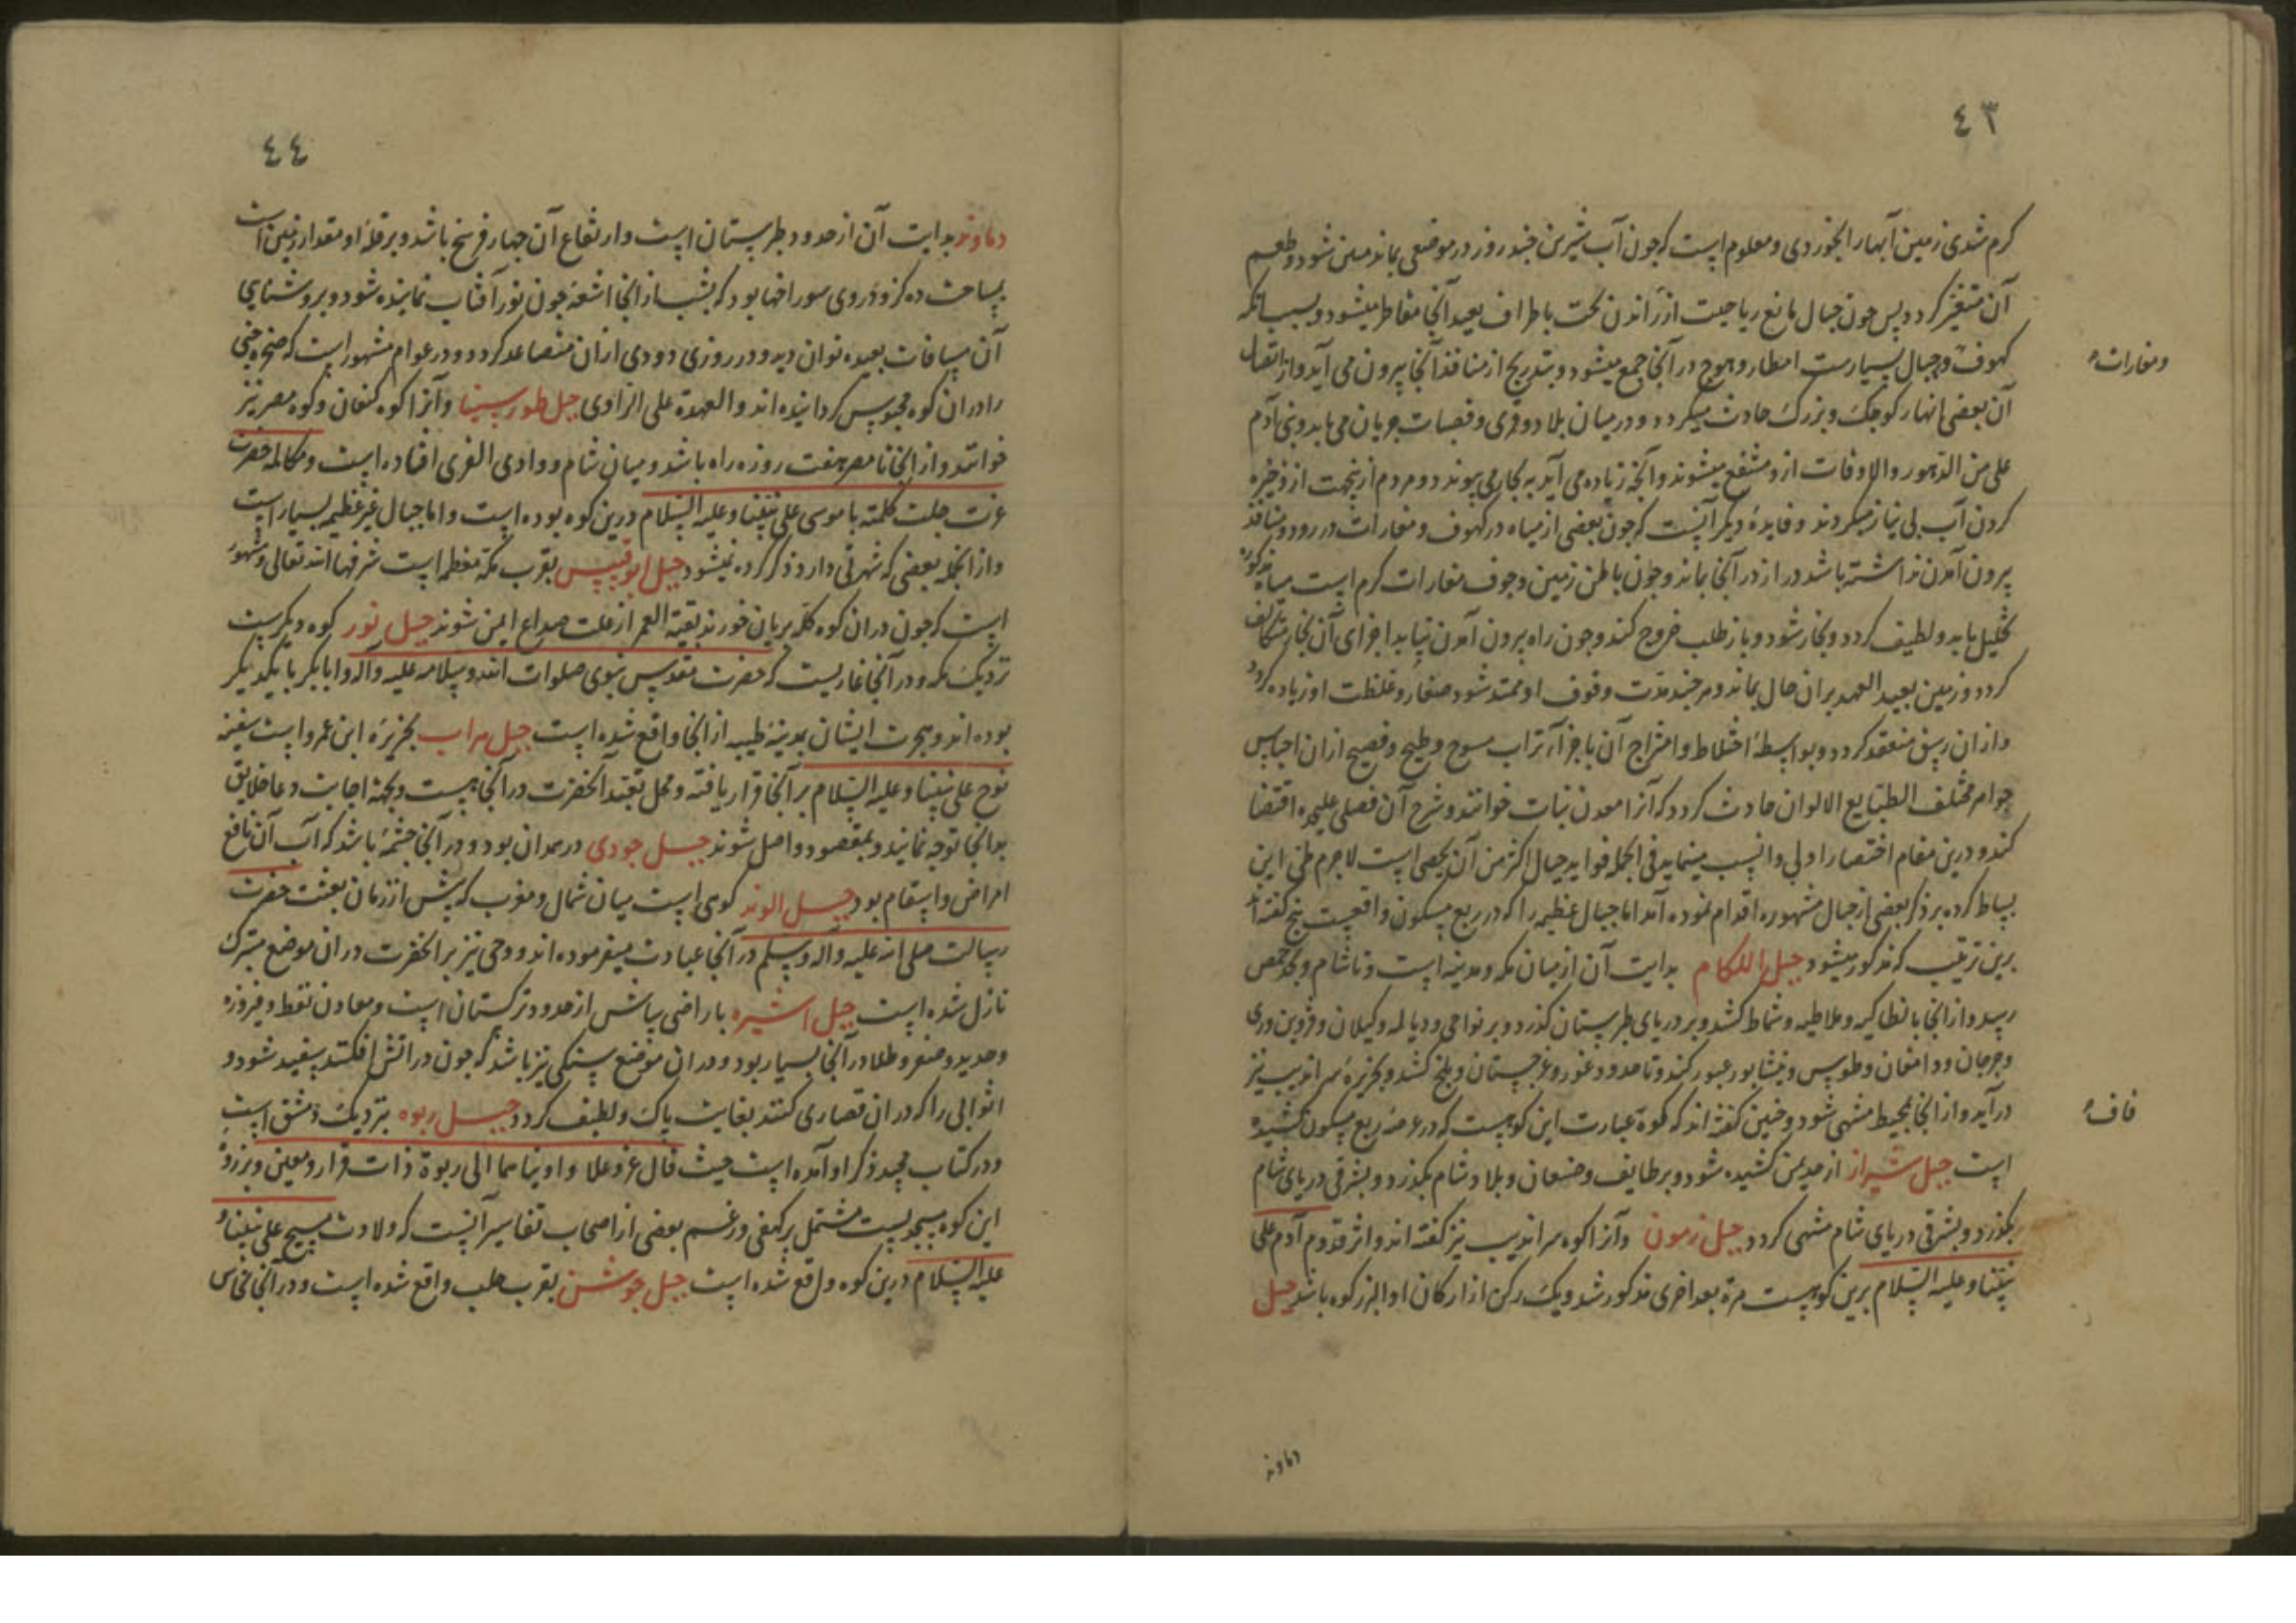 ٤٣
کرم شدی زمین آبها را بخوردی و معلومست که چون آب شیرین چند روز در موضعی بماند متعفن شود و طعم
آن متغیر کردد پس چون جبال مانع ریاحست از راندن تحت باطراف بعید آنجا مقاطر میشود و بسبب آنکه
کهوف در جبال بسیارست امطار و ثلوج در آنجا جمع میشود و بتدریج از منافذ آنجا بیرون می آید و از اتصال
ومغارات
آن بعضی انهار کوچک و بزرک حادث میکردد و در میان بلاد و قری و قصبات جریان می یابد و بنی آدم
علی مر الدهور والاوقات ازو منتفع میشوند و آنچه زیاده می آید به بحار می پیوندد و مردم ازینجهت از ذخیره
کردن آب بی نیاز میکردند و فایدهٔ دیکر آنست که چون بعضی از میاه در کهوف و مغارات در رود و منافذ
بیرون آمدن نداشته باشد در از در آنجا بماند و چون باطن زمین و جوف مغارات کرم است میاه مذکوره
تحلیل یابد و لطیف کردد و بخار شود و باز طلب خروج کند و چون راه بیرون آمدن نیابد اجزای آن بخار متکاثف
کردد و زمین بعید العهد بران حال بماند و هر چند مدت وقوف او ممتد شود صفار و غلظت او زیاده کردد
و ازان زیبق منعقد کردد و بواسطهٔ اختلاط و امتزاج آن باجزآء تراب ازان اجناس
جواهر مختلف الطبایع الالوان حادث کردد که آنرا معدن نبات خوانند و شرح آن فصلی علیحده اقتضا
کند و درین مقام اختصار اولی و انسب مینماید فی الجمله فواید جبال اکثر من آن یحصی است لاجرم طی این
بساط کرده بر ذکر بعضی از جبال مشهوره اقدام نموده آمد اما جبال عظیمه را که در ربع مسکون واقعست پنج کفته اند
برین ترتیب که مذکور میشود جبل اللکام بدایت آن از میان مکه و مدینه است و تا شام و بحد حمص
رسد و از آنجا بانطاکیه و ملاطیه و شماط کشد و بر دریای طبرستان کذرد و بر نواحی و دیالمه و کیلان و قزوین و ری
و جرجان و دامغان و طوس و نیشابور عبور کند و تا حدود غور و غرجستان و بلخ کشد و بجزیرهٔ سراندیب نیز
درآید و از آنجا بمحیط منتهی شود و چنین کفته اند که کوه عبارت این کوهیست که در عرصهٔ ربع مسکون کشیده
قاف
است جبل شیراز از حد یمن کشیده شود و بر طایف و صنعان و بلاد شام بکذرد و بشرقی دریای شام
بکذرد و بشرقی دریای شام منتهی کردد جبل زمون و آنرا کوه سراندیب نیز کفته اند و اثر قدوم آدم علی
نبینا و علیه السلام برین کوهیست مرة بعد اخری مذکور شد و یک رکن از ارکان او البرز کوه باشد جبل
دماوند
٤٤
دماوند بدایت آن از حدود طبرستان است و ارتفاع آن چهار فرسخ باشد و بر قلهٔ او مقدار زمین است
بمساحت ده کز و دروی سوراخها بود که بشب از آنجا اشعه چون نور آفتاب نماینده شود و بروشنایی
آن مسافات بعیده توان دید و در روزی دودی ازان متصاعد کردد و در عوام مشهور است که صخره جنی
را دران کوه محبوس کردانیده اند والعهدة علی الراوی جبل طور سینا و آنرا کوه کنعان و کوه مصر نیز
خوانند و از آنجا تا مصر هفت روزه راه باشد و میان شام و وادی القری افتاده است و مکالمه حضرت
عزت جلت کلمته با موسی علی نبینا و علیه السلام درین کوه بوده است و اما جبال غیر عظیمه بسیار است
و از آنجمله بعضی که شهرتی دارد ذکر کرده میشود جبل ابوقبیس بقرب مکه معظمه است شرفها الله تعالی و مشهور
است که چون دران کوه کله بریان خورند بقیة العمر از علت صداع ایمن شوند جبل نور کوه دیکریست
نزدیک مکه و در آنجا غاریست که حضرت مقدس نبوی صلوات الله و سلامه علیه و آله و ابابکر با یکدیکر
بوده اند و هجرت ایشان بمدینهٔ طیبه از آنجا واقع شده است جبل مراب بجزیرهٔ ابن عمرو است سفینه
نوح علی نبینا و علیه السلام بر آنجا قرار یافته و محل تعبد آنحضرت در آنجا هست و بجهة اجابت دعا خلایق
بدانجا توجه نمایند و بمقصود واصل شوند جبل جودی در همدان بود و در آنجا چشمهٔ باشد که آب آن نافع
امراض و اسقام بود جبل الوند کوهی است میان شمال و مغرب که پیش از زمان بعثت حضرت
رسالت صلی الله علیه و آله و سلم در آنجا عبادت میفرموده اند و وحی نیز بر آنحضرت دران موضع متبرک
نازل شده است جبل اشیره باراضی شاش از حدود ترکستان است و معادن نفط و فیروزه
و حدید و صفر و طلا در آنجا بسیار بود و دران موضع سنکی نیز باشد که چون در آتش افکنند سفید شود و
اثوابی را که دران قصاری کنند بغایت پاک و لطیف کردد جبل ربوه بنزدیک دمشق است
و در کتاب مجید ذکر او آمده است حیث قال عز و علا و اویناهما الی ربوة ذات قرار و معین و بر ذروهٔ
این کوه مسجدیست مشتمل بر کهفی و زعم بعضی از اصحاب تفاسیر آنست که ولادت مسیح علی نبینا و
علیه السلام درین کوه واقع شده است جبل جوشن بقرب حلب واقع شده است و در آنجا نحاس